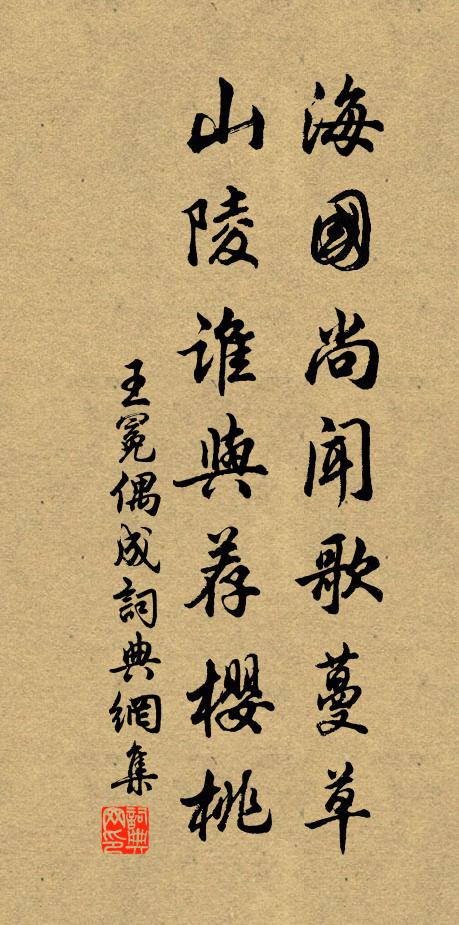 海國尚聞歌蔓草
山陵誰與荐櫻桃
王冕偶成詞典網集
詞典網印